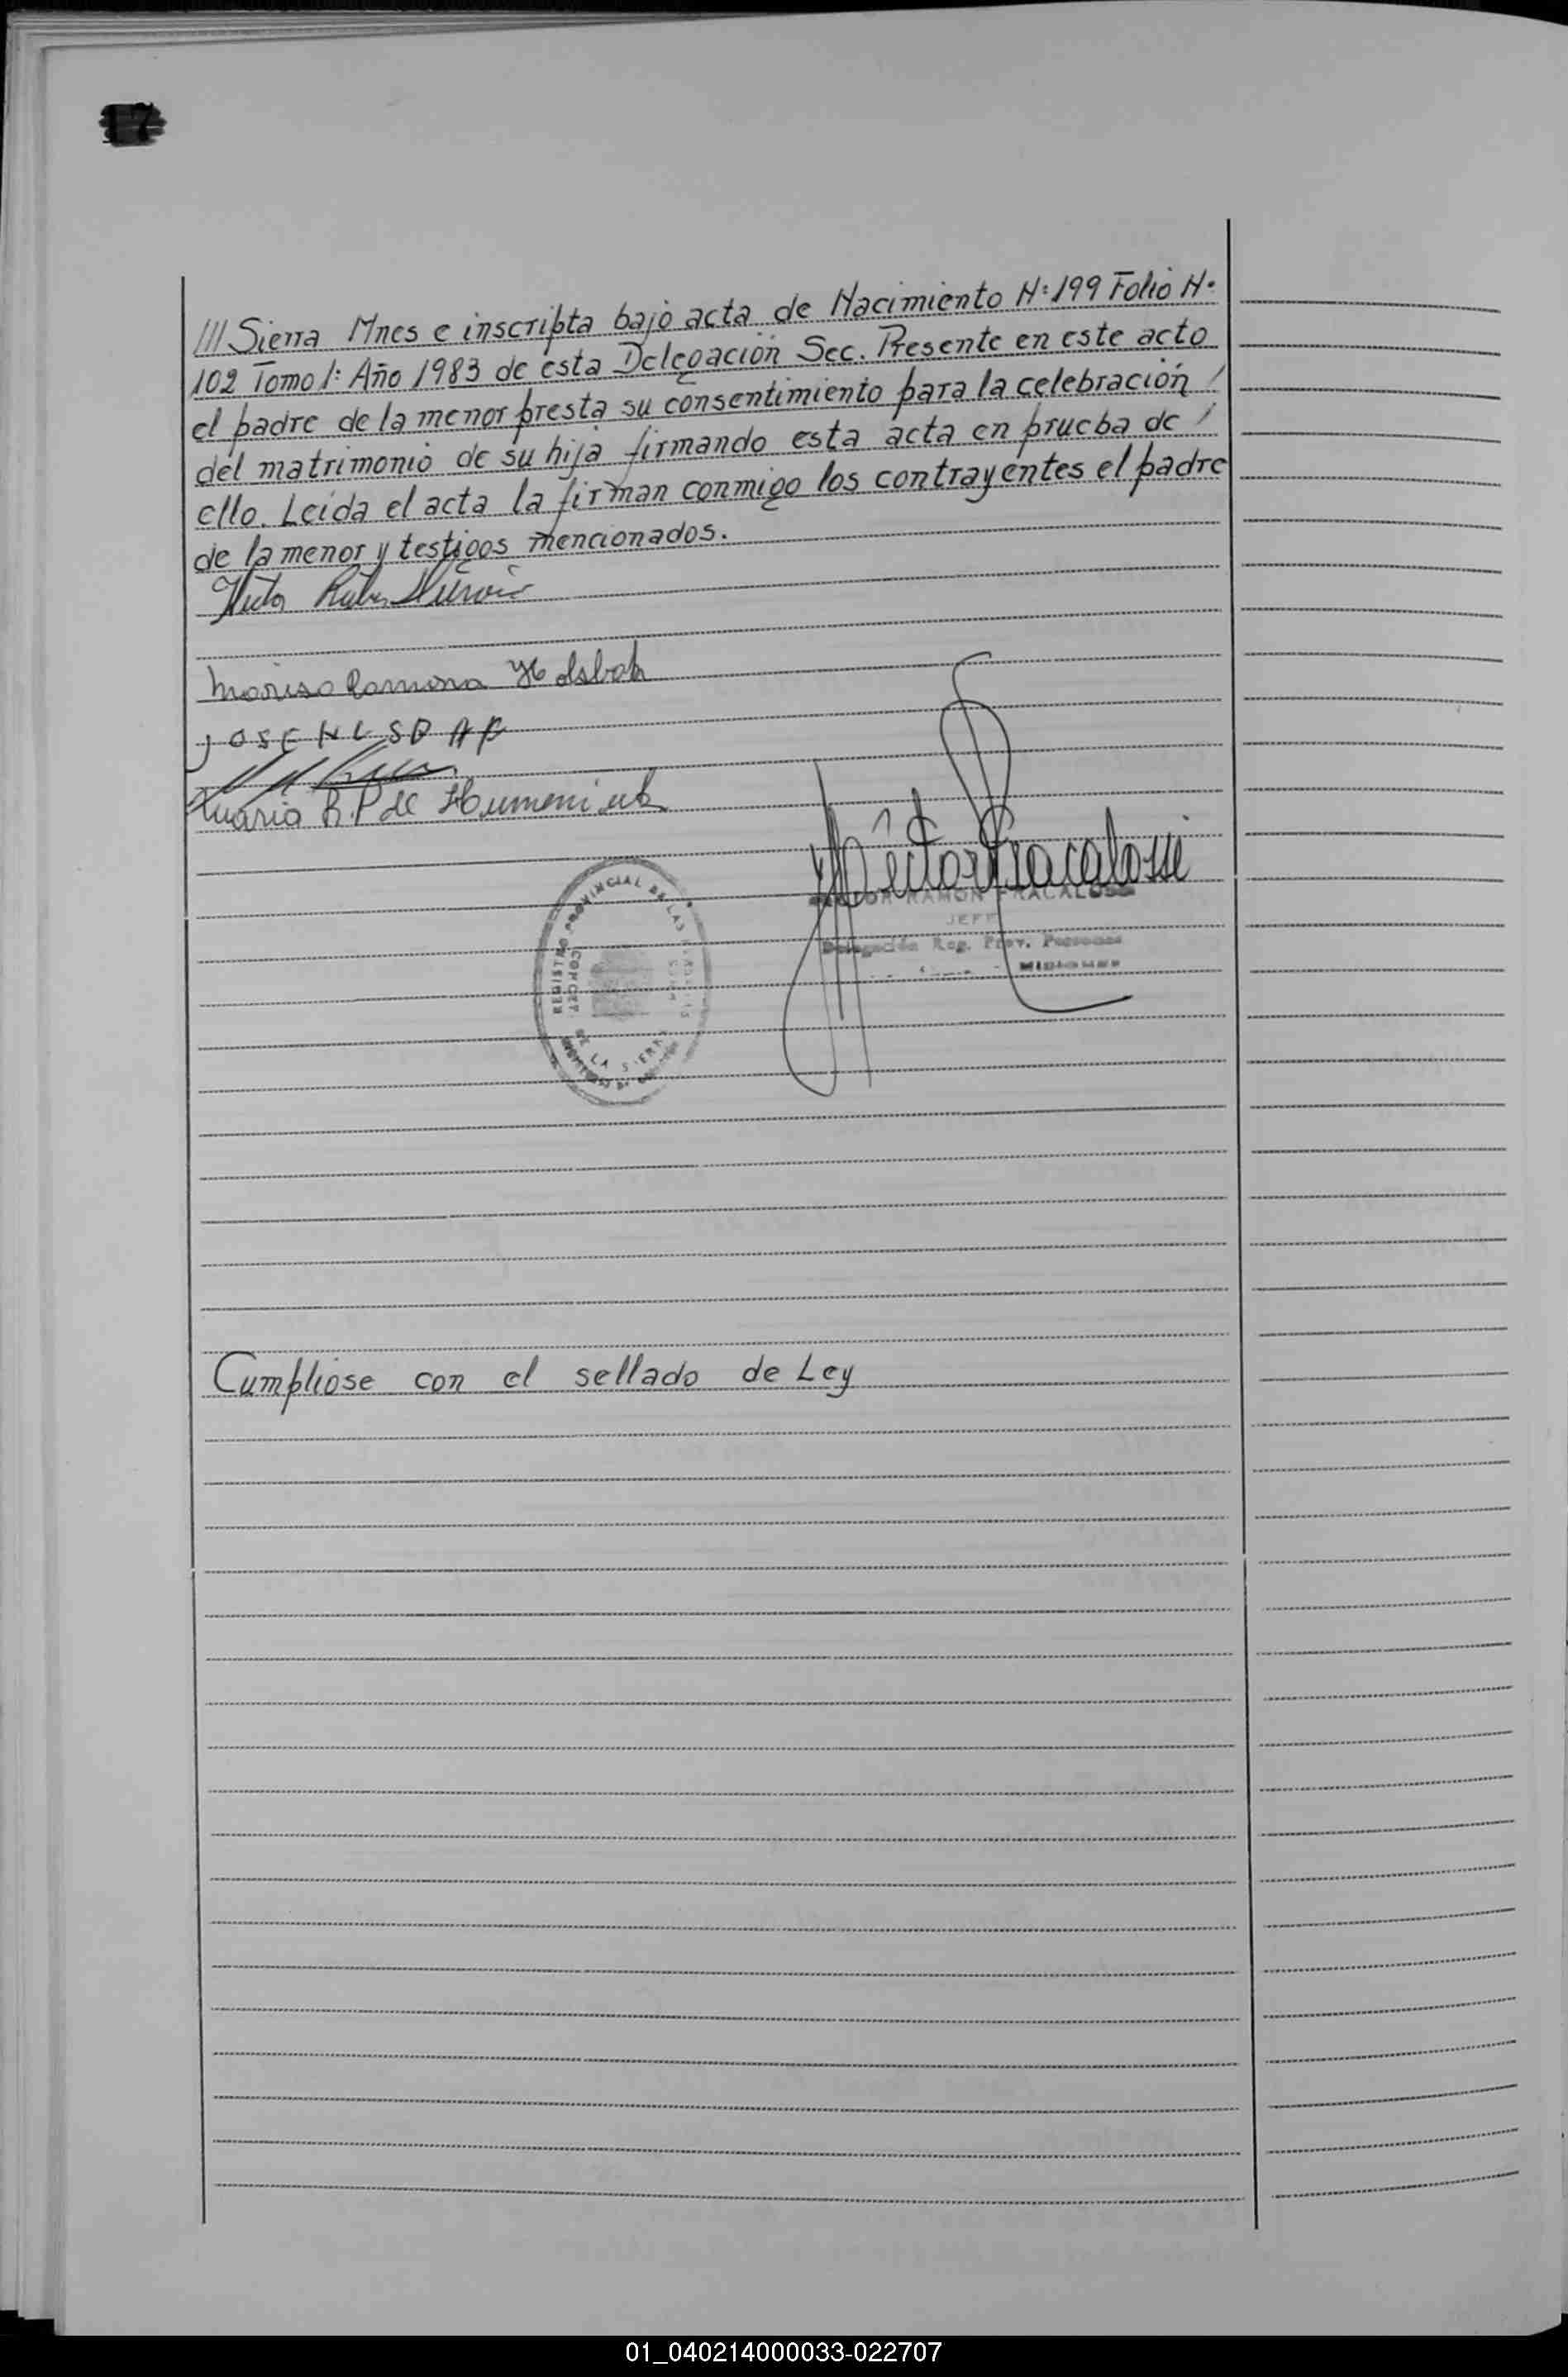 17
/// Sierra Mnes e inscripta bajo acta de Nacimiento N: 199 Folio N.
102 Tomo 1: Año 1983 de esta Delegación Sec. Presente en este acto
el padre de la menor presta su consentimiento para la celebración /
del matrimonio de su hija firmando esta acta en prueba de /
ello. Leída el acta la firman conmigo los contrayentes el padre
de la menor y testigos mencionados.
Ramona
JOSE
Maria R. P de
Hector Fracalossi
RAMON FRACALOSSI
JEFE
Delegación Reg. Prov. Personas
MISIONES
REGISTRO PROVINCIAL DE LAS
DE LA SIERRA
Cumpliose con el sellado de Ley
01_040214000033-022707